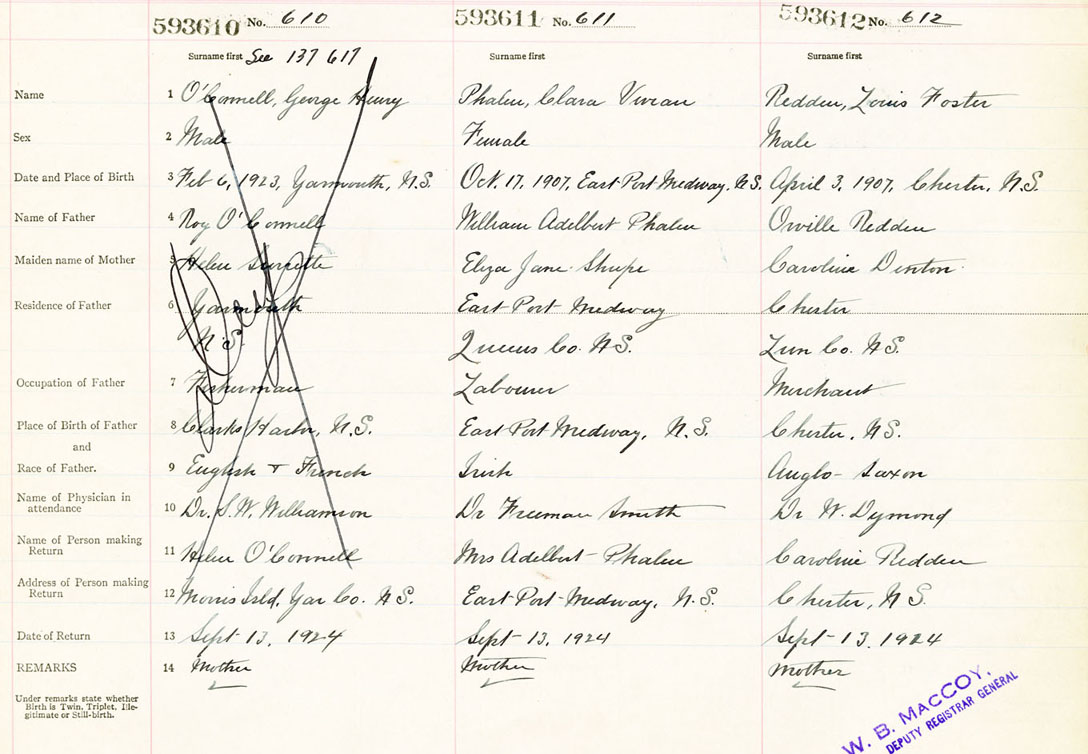 593610 No. 610 593611 No. 611 593612 No. 612
Surname first See 137 617 Surname first Surname first
Name 1 O'Connell, George Henry Phalen, Clara Vivian Redden, Louis Foster
Sex 2 Male Female Male
Date and Place of Birth 3 Feb 6, 1923, Yarmouth, N.S. Oct. 17, 1907, East Port Medway, N.S. April 3, 1907, Chester, N.S.
Name of Father 4 Roy O'Connell William Adelbert Phalen Orville Redden
Maiden name of Mother 5 Helen Surrette Eliza Jane Shupe Caroline Denton
Residence of Father 6 Yarmouth East Port Medway Chester
N.S. Queens Co. N.S. Lun Co. N.S.
Occupation of Father 7 Fisherman Labourer Merchant
Place of Birth of Father 8 Clarks Harbor, N.S. East Port Medway, N.S. Chester, N.S.
and
Race of Father. 9 English & French Irish Anglo-Saxon
Name of Physician in
attendance 10 Dr. S.W. Williamson Dr Freeman Smith Dr W. Dymond
Name of Person making
Return 11 Helen O'Connell Mrs Adelbert Phalen Caroline Redden
Address of Person making
Return 12 Morris Isld, Yar Co. N.S. East Port Medway, N.S. Chester, N.S.
Date of Return 13 Sept 13, 1924 Sept 13, 1924 Sept 13, 1924
REMARKS 14 Mother Mother Mother
Under remarks state whether
Birth is Twin, Triplet, Ille-
gitimate or Still-birth.
W. B. MACCOY,
DEPUTY REGISTRAR GENERAL